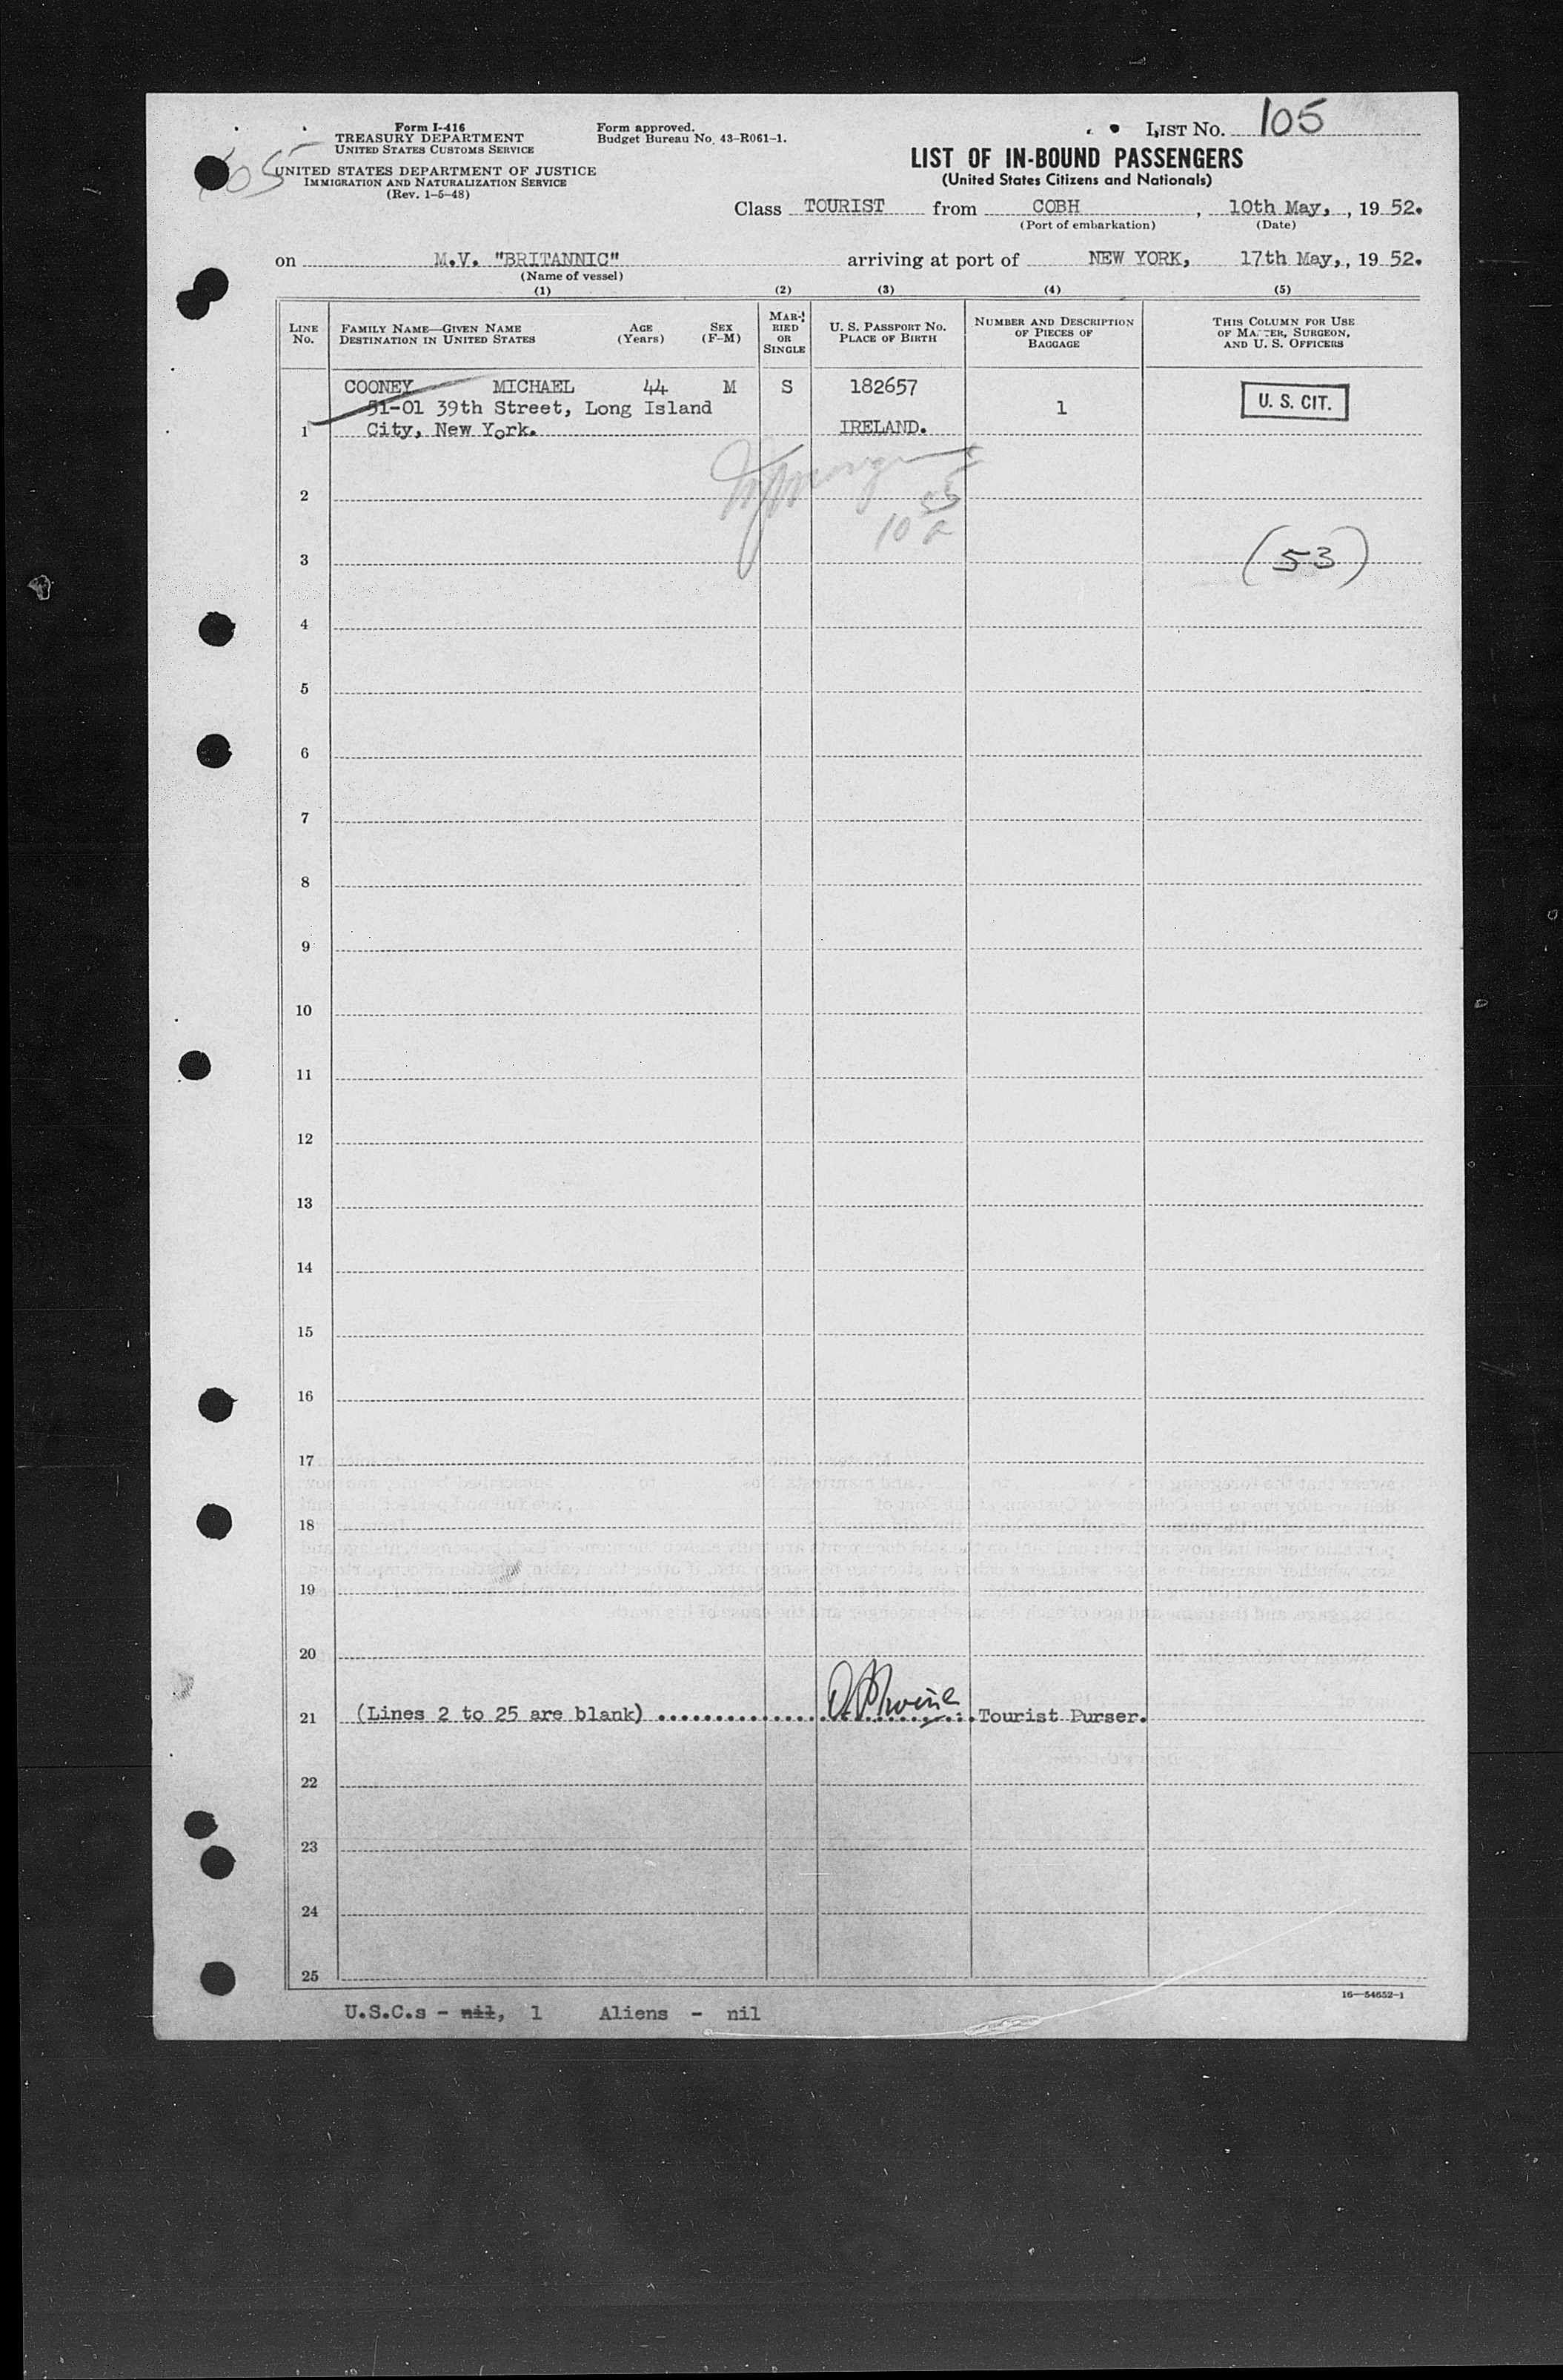 Form I-416
TREASURY DEPARTMENT
UNITED STATES CUSTOMS SERVICE
UNITED STATES DEPARTMENT OF JUSTICE
IMMIGRATION AND NATURALIZATION SERVICE
(Rev. 1-5-48)
Form approved.
Budget Bureau No. 43-R061-1.
LIST NO. 105
LIST OF IN-BOUND PASSENGERS
(United States Citizens and Nationals)
Class TOURIST from COBH, 10th May, , 19 52.
(Port of embarkation) (Date)
on M.V. "BRITANNIC" arriving at port of NEW YORK, 17th May, , 19 52.
(Name of vessel)
(1) (2) (3) (4) (5)
LINE NO.
FAMILY NAME—GIVEN NAME AGE SEX
DESTINATION IN UNITED STATES (Years) (F-M)
MARRIED OR SINGLE
U. S. PASSPORT NO.
PLACE OF BIRTH
NUMBER AND DESCRIPTION
OF PIECES OF
BAGGAGE
THIS COLUMN FOR USE
OF MASTER, SURGEON,
AND U. S. OFFICERS
COONEY MICHAEL 44 M S 182657
51-01 39th Street, Long Island 1 U. S. CIT.
1 City, New York. IRELAND.
2
10
3 (53)
4
5
6
7
8
9
10
11
12
13
14
15
16
17
18
19
20
21 (Lines 2 to 25 are blank) Tourist Purser.
22
23
24
25
16—54652-1
U.S.C.s - nil, 1 Aliens - nil